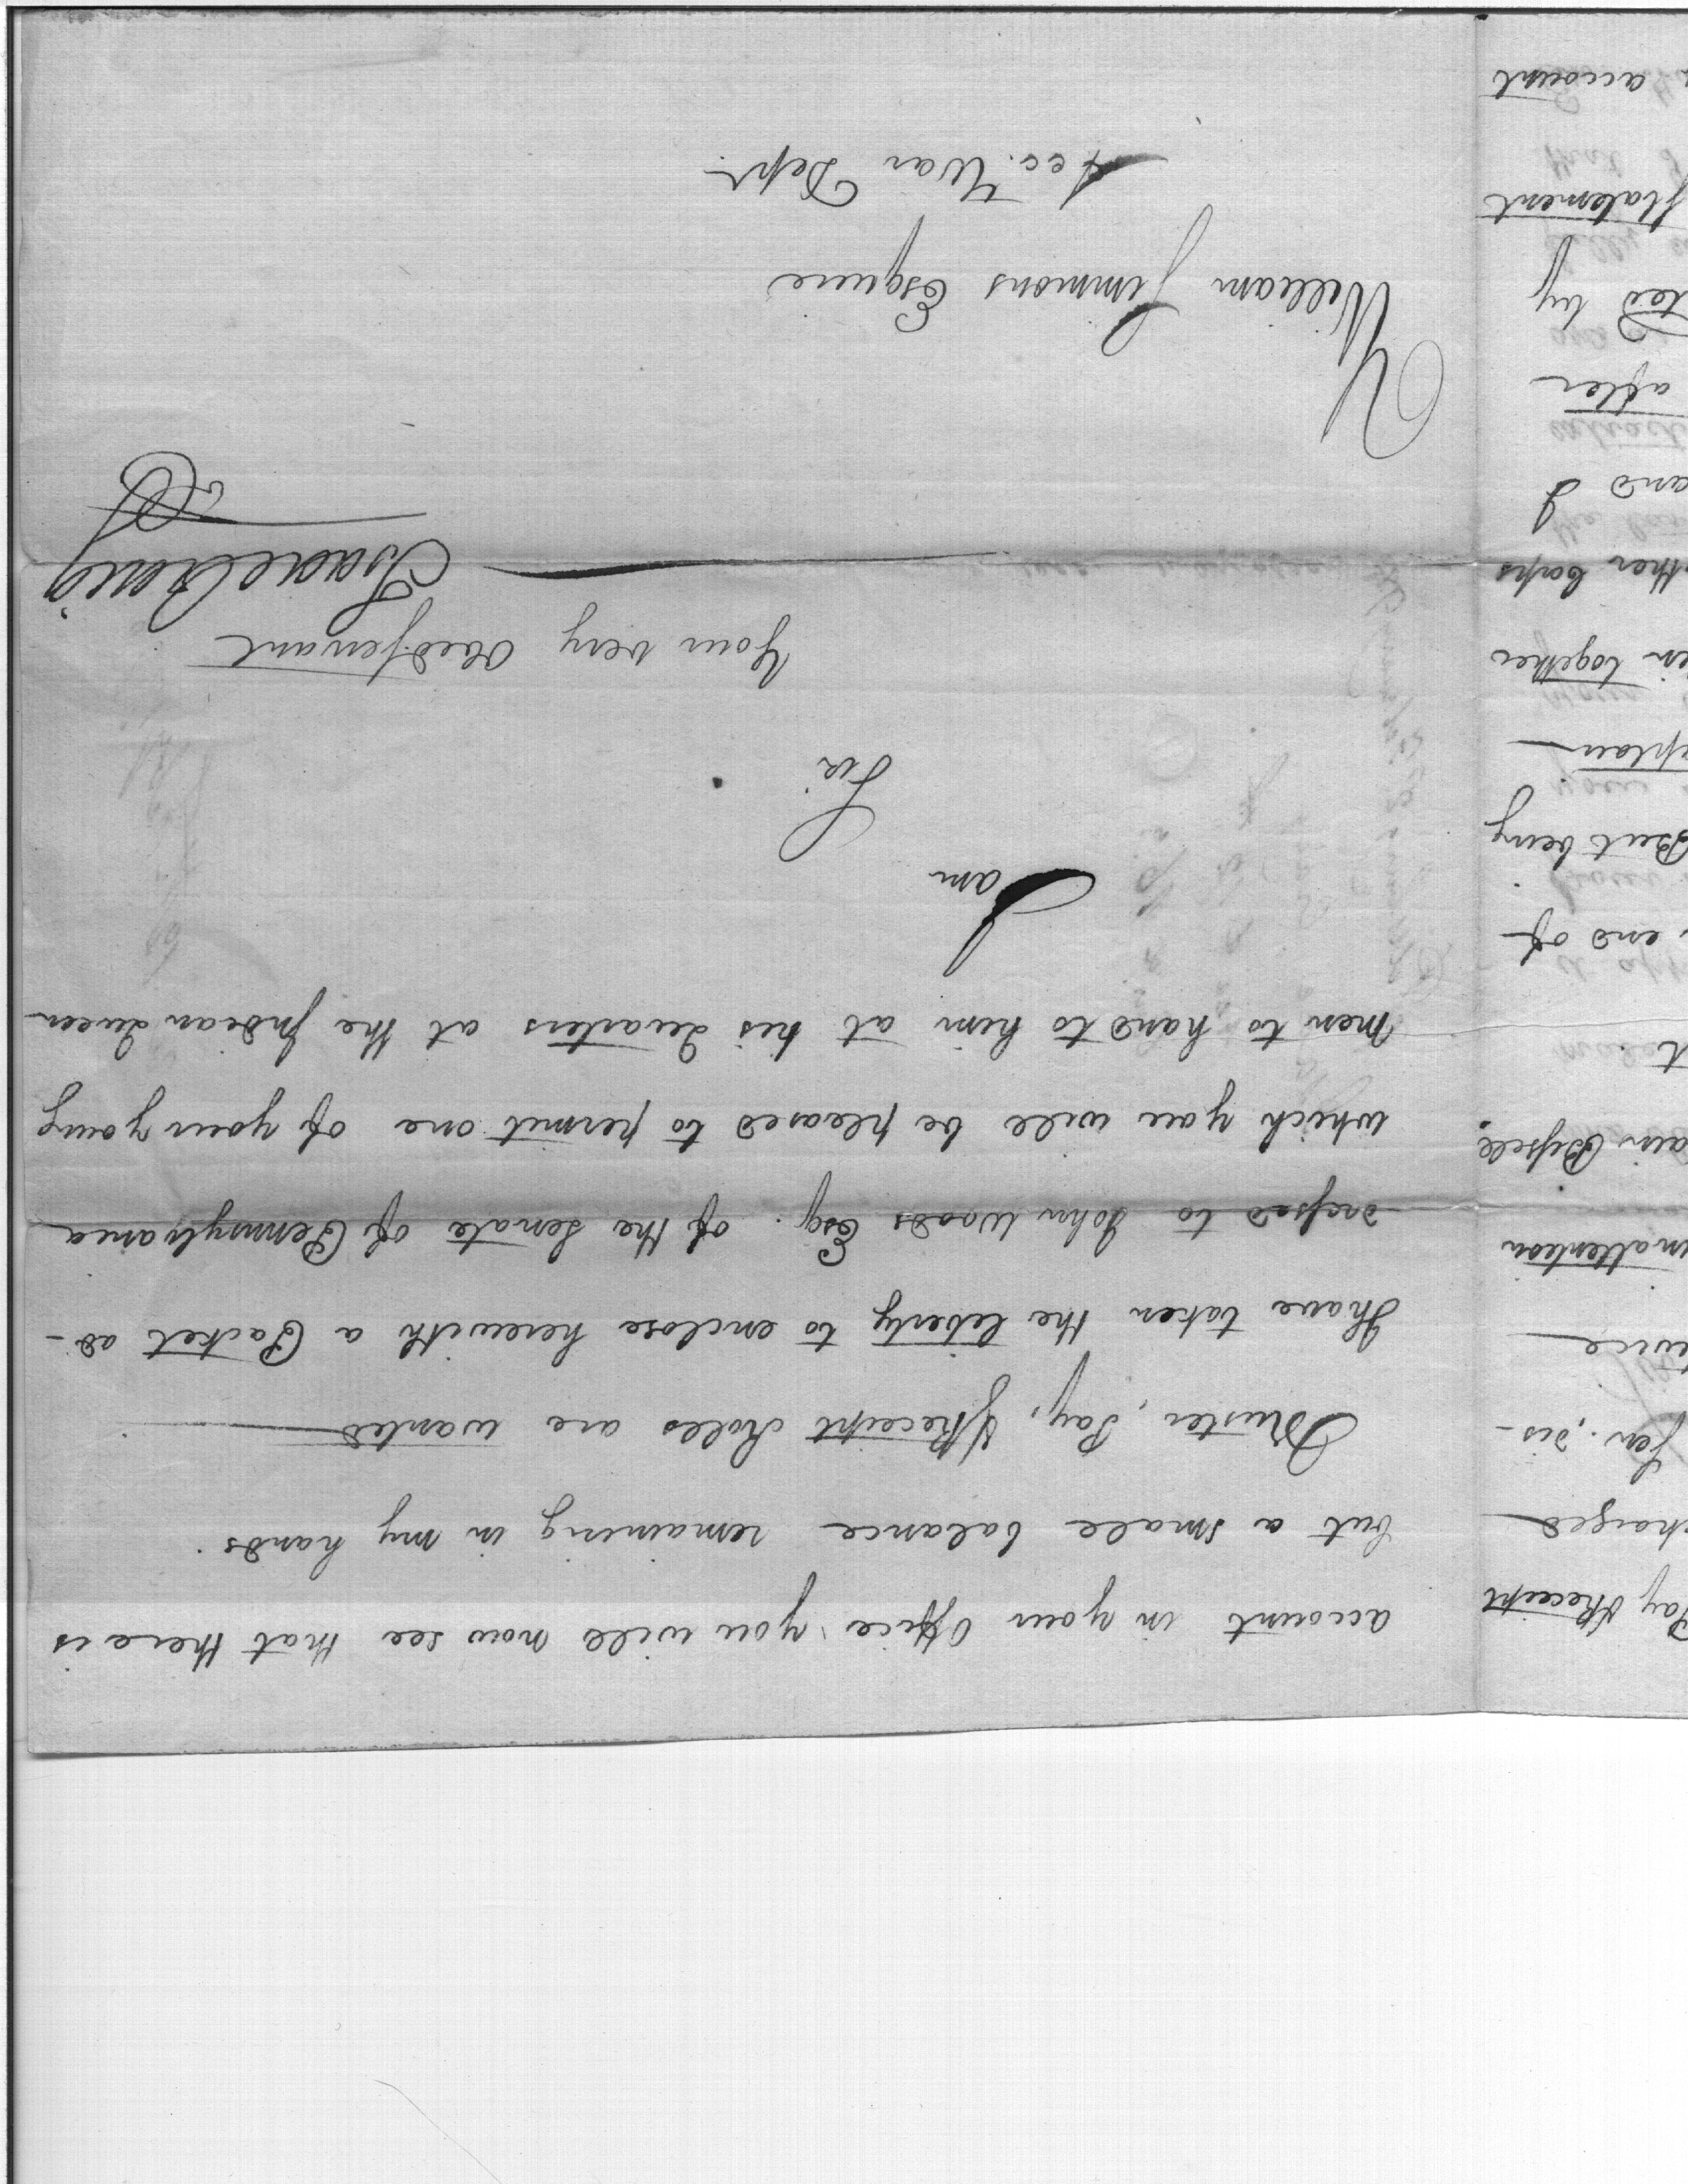 account in your office you will now see that there is
but a small balance remaining in my hands.
Muster, Pay, & Receipt Rolls are wanted
I have taken the liberty to enclose herewith a Packet ad-
dressed to John Woods Esqr. of the Senate of Pennsylvania
which you will be pleased to permit one of your young
men to hand to him at his Quarters at the Indian Queen
I am
Sir
Your very Obed Servant
Isaac Craig
William Simmons Esquire
Acc. War Dept.
Pay & Receipt
charged
Ser. dis-
twice
inattention
ain Bissell
t.
end of
But being
eplau
in together
ther Corps
and I
after
ted by
statement
account